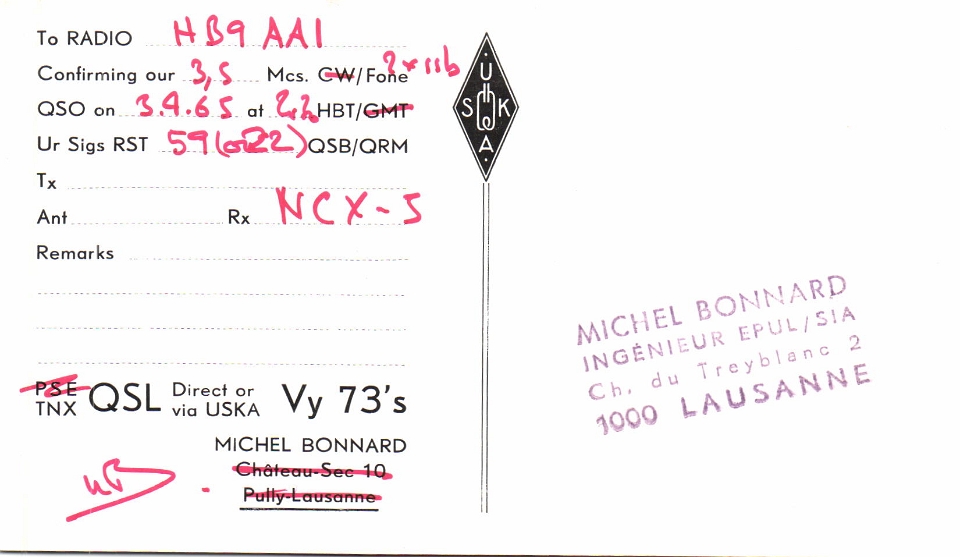 To RADIO HB9 AAI
Confirming our 3,5 Mcs. CW/Fone 2x ssb
QSO on 3.9.65 at 22 HBT/GMT
Ur Sigs RST 59 QSB/QRM
Tx
Ant Rx NCX-5
Remarks
PSE
TNX QSL Direct or via USKA Vy 73's
MICHEL BONNARD
Château-Sec 10
Pully-Lausanne
U
S K
A
MICHEL BONNARD
INGÉNIEUR EPUL/SIA
Ch. du Treyblanc 2
1000 LAUSANNE